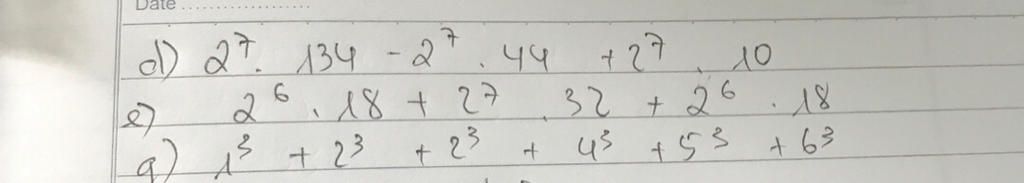 Date ....................
d) 2⁷. 134 - 2⁷ . 44 + 2⁷ . 10
e) 2⁶ . 18 + 2⁷ . 32 + 2⁶ . 18
g) 1³ + 2³ + 2³ + 4³ + 5³ + 6³